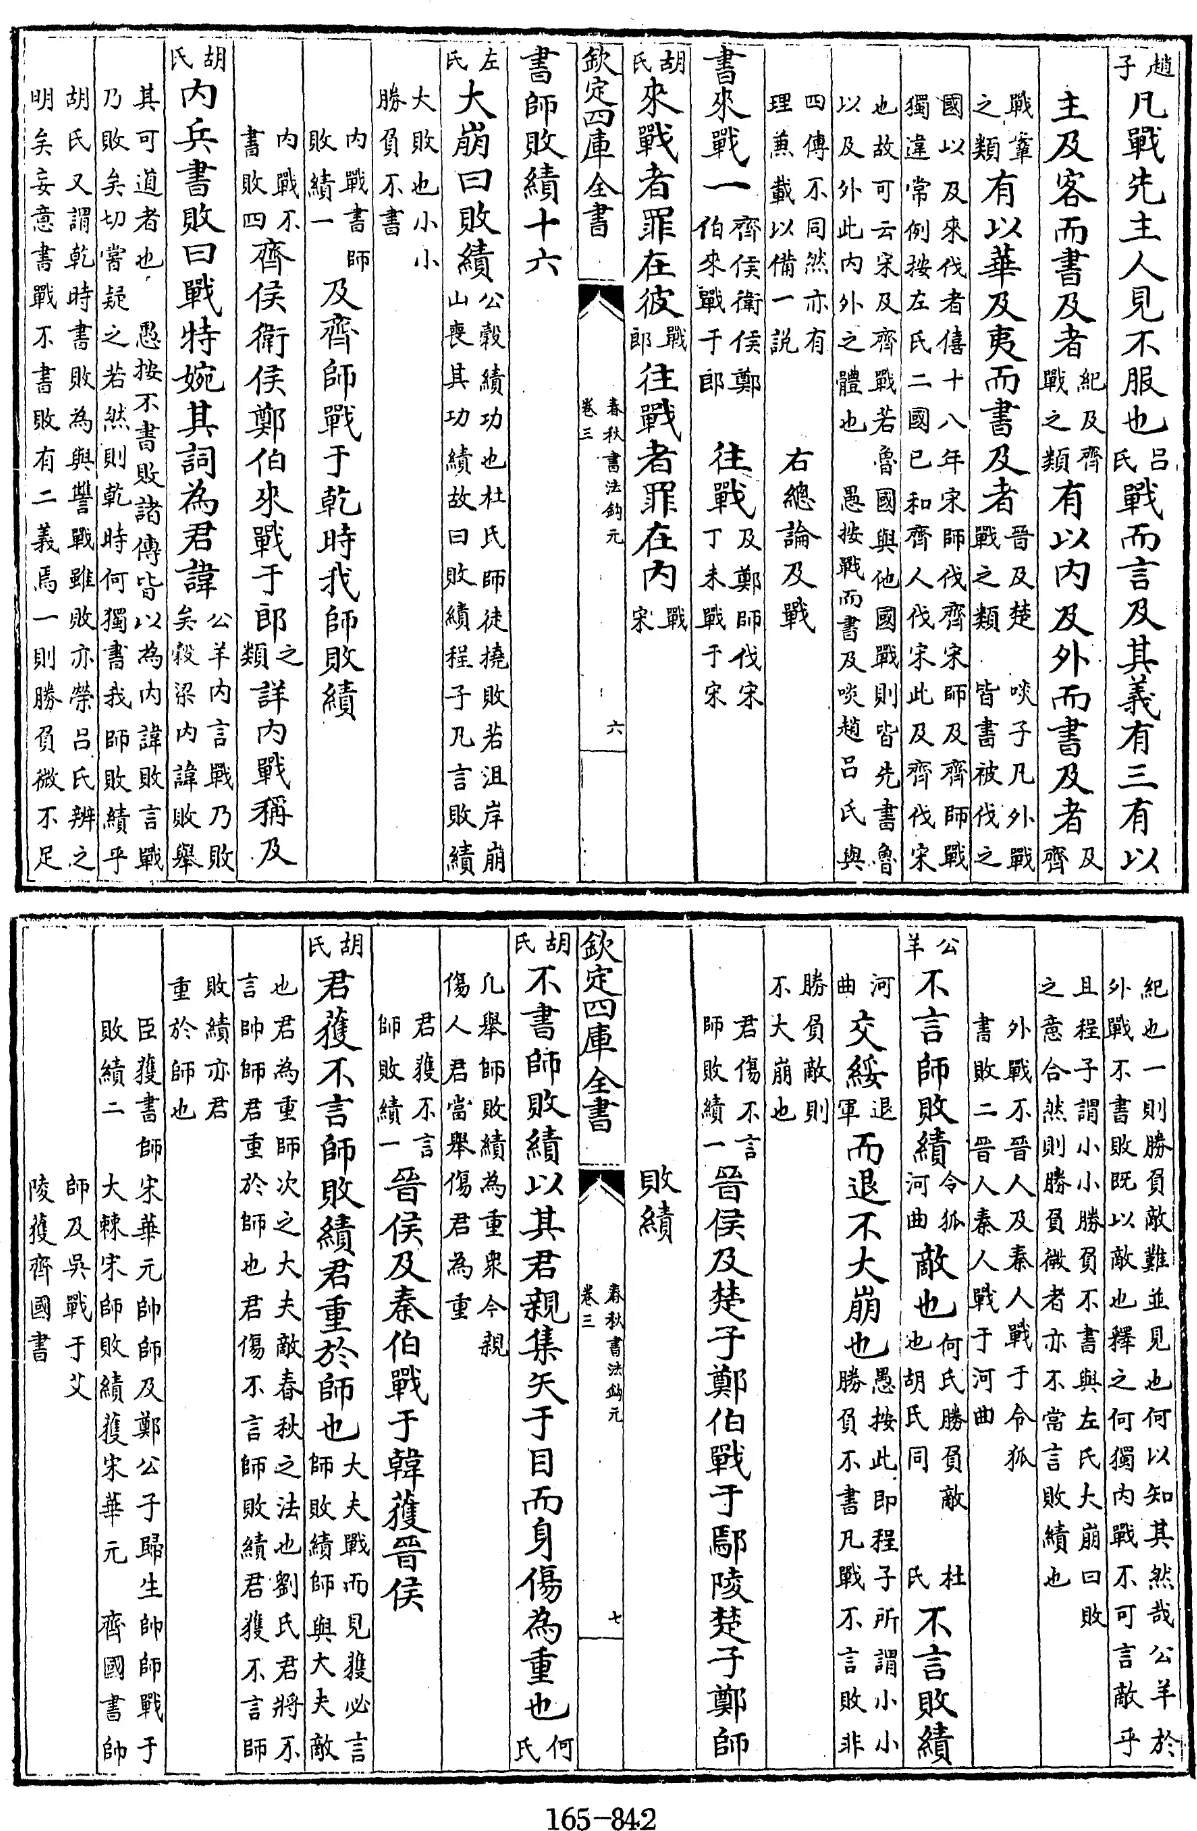 趙子凡戰先主人見不服也呂氏戰而言及其義有三有以
主及客而書及者紀及齊戰之類有以内及外而書及者及齊
戰鞌之類有以華及夷而書及者晉及楚戰之類 啖子凡外戰皆書被伐之
國以及來伐者僖十八年宋師伐齊宋師及齊師戰
獨違常例按左氏二國已和齊人伐宋此及齊伐宋
也故可云宋及齊戰若魯國與他國戰則皆先書魯
以及外此内外之體也 愚按戰而書及啖趙呂氏與
四傳不同然亦有理兼載以備一説 右總論及戰
書來戰一齊侯衛侯鄭伯來戰于郎 往戰及鄭師伐宋丁未戰于宋
胡氏來戰者罪在彼戰郎往戰者罪在内戰宋
欽定四庫全書 春秋書法鈎元卷三 六
書師敗績十六
左氏大崩曰敗績公穀績功也杜氏師徒撓敗若沮岸崩山喪其功績故曰敗績程子凡言敗績
大敗也小小勝負不書
内戰書師敗績一 及齊師戰于乾時我師敗績
内戰不書敗四齊侯衛侯鄭伯來戰于郎之類詳内戰稱及
胡氏内兵書敗曰戰特婉其詞為君諱公羊内言戰乃敗矣穀梁内諱敗舉
其可道者也 愚按不書敗諸傳皆以為内諱敗言戰
乃敗矣切嘗疑之若然則乾時何獨書我師敗績乎
胡氏又謂乾時書敗為與讐戰雖敗亦榮呂氏辨之
明矣妄意書戰不書敗有二義焉一則勝負微不足
紀也一則勝負敵難並見也何以知其然哉公羊於
外戰不書敗既以敵也釋之何獨内戰不可言敵乎
且程子謂小小勝負不書與左氏大崩曰敗
之意合然則勝負微者亦不當言敗績也
外戰不書敗二晉人及秦人戰于令狐晉人秦人戰于河曲
公羊不言師敗績令狐河曲敵也何氏勝負敵也胡氏同 杜氏不言敗績
河曲交綏退軍而退不大崩也愚按此即程子所謂小小勝負不書凡戰不言敗非
勝負敵則不大崩也
君傷不言師敗績一晉侯及楚子鄭伯戰于鄢陵楚子鄭師
敗績
欽定四庫全書 春秋書法鈎元卷三 七
胡氏不書師敗績以其君親集矢于目而身傷為重也何氏
凡舉師敗績為重衆今親傷人君當舉傷君為重
君獲不言師敗績一晉侯及秦伯戰于韓獲晉侯
胡氏君獲不言師敗績君重於師也大夫戰而見獲必言師敗績師與大夫敵
也君為重師次之大夫敵春秋之法也劉氏君將不
言帥師君重於師也君傷不言師敗績君獲不言師
敗績亦君重於師也
臣獲書師敗績二宋華元帥師及鄭公子歸生帥師戰于大棘宋師敗績獲宋華元 齊國書帥
師及吳戰于艾陵獲齊國書
165-842